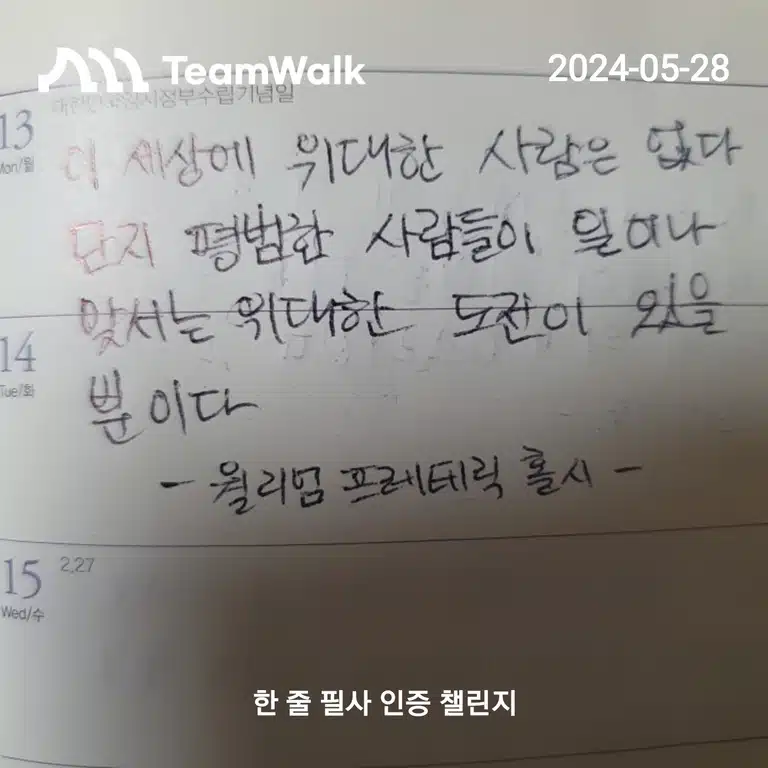 TeamWalk
2024-05-28
13
Mon/월
대한민국임시정부수립기념일
이 세상에 위대한 사람은 없다
단지 평범한 사람들이 일어나
맞서는 위대한 도전이 있을
뿐이다
- 윌리엄 프레데릭 홀시 -
14
Tue/화
15
Wed/수
2.27
한 줄 필사 인증 챌린지